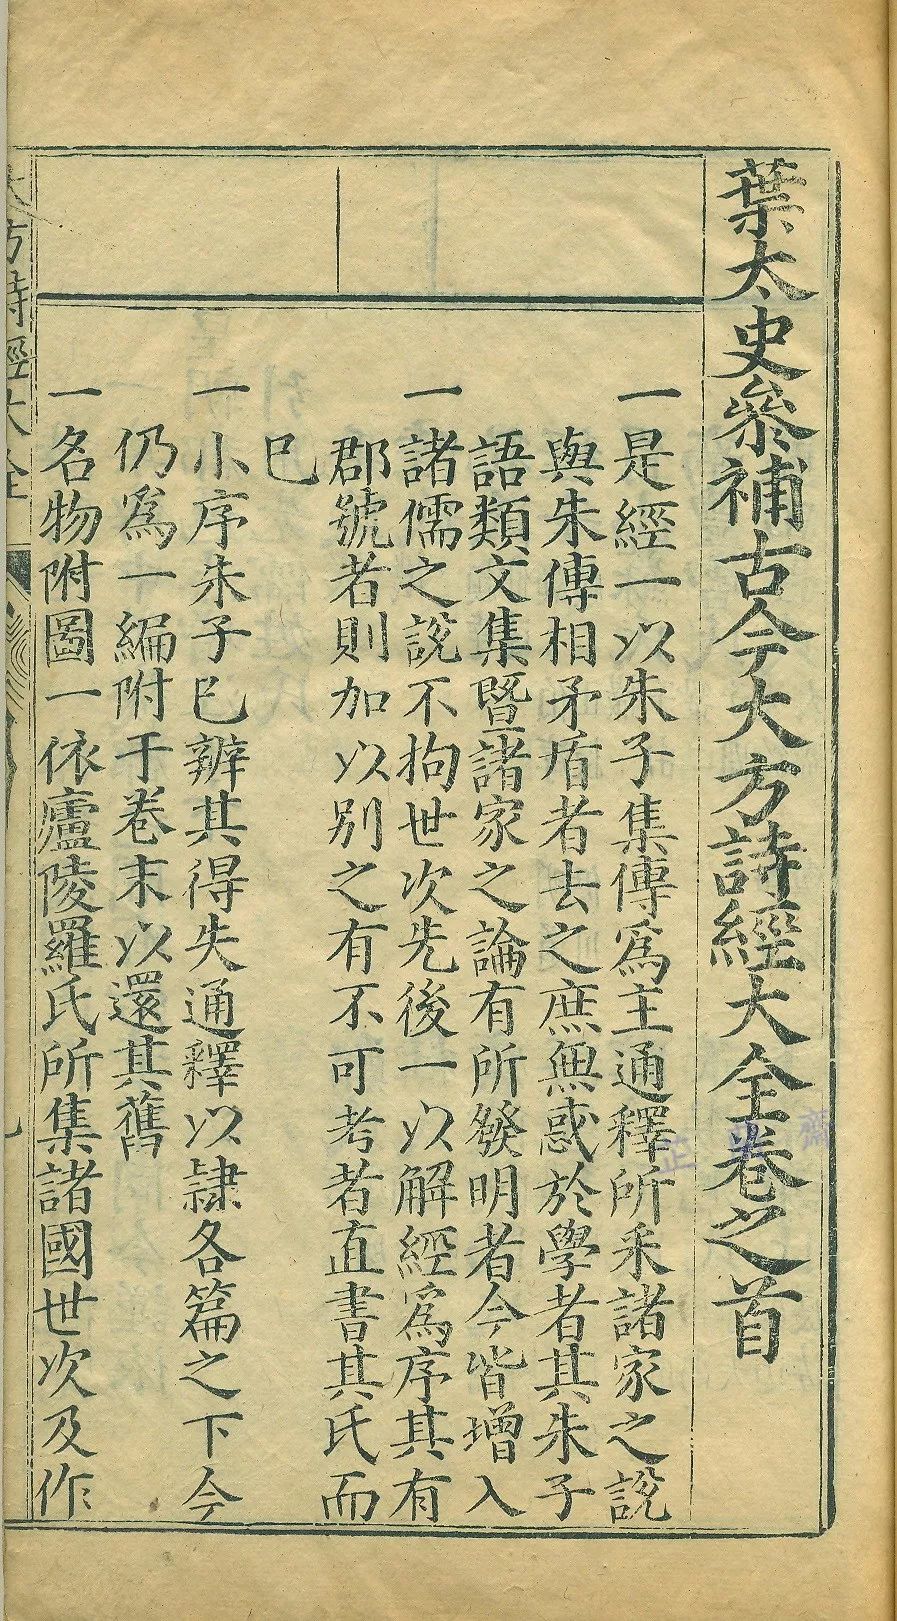 葉太史參補古今大方詩經大全卷之首
一是經一以朱子集傳爲主通釋所采諸家之說
與朱傳相矛盾者去之庶無惑於學者其朱子
語類文集暨諸家之論有所發明者今皆增入
一諸儒之說不拘世次先後一以解經爲序其有
郡號者則加以別之有不可考者直書其氏而
巳
一小序朱子巳辨其得失通釋以隷各篇之下今
仍爲一編附于卷末以還其舊
一名物附圖一依廬陵羅氏所集諸國世次及作
大方詩經大全